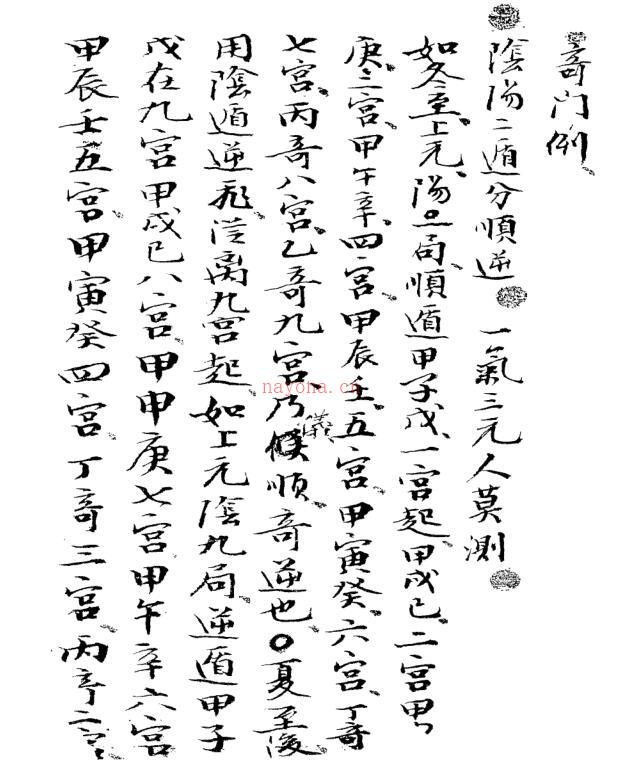 奇门例
陰陽二遁分順逆 一氣三元人莫測
如冬至上元陽一局順遁甲子戊一宫起甲戌己二宫甲
庚三宫甲午辛四宫甲辰壬五宫甲寅癸六宫丁奇
七宫丙奇八宫乙奇九宫乃儀順奇逆也○夏至後
用陰遁逆飛從离九宫起如上元陰九局逆遁甲子
戊在九宫甲戌己八宫甲申庚七宫甲午辛六宫
甲辰壬五宫甲寅癸四宫丁奇三宫丙奇二宫
nayoha.cn